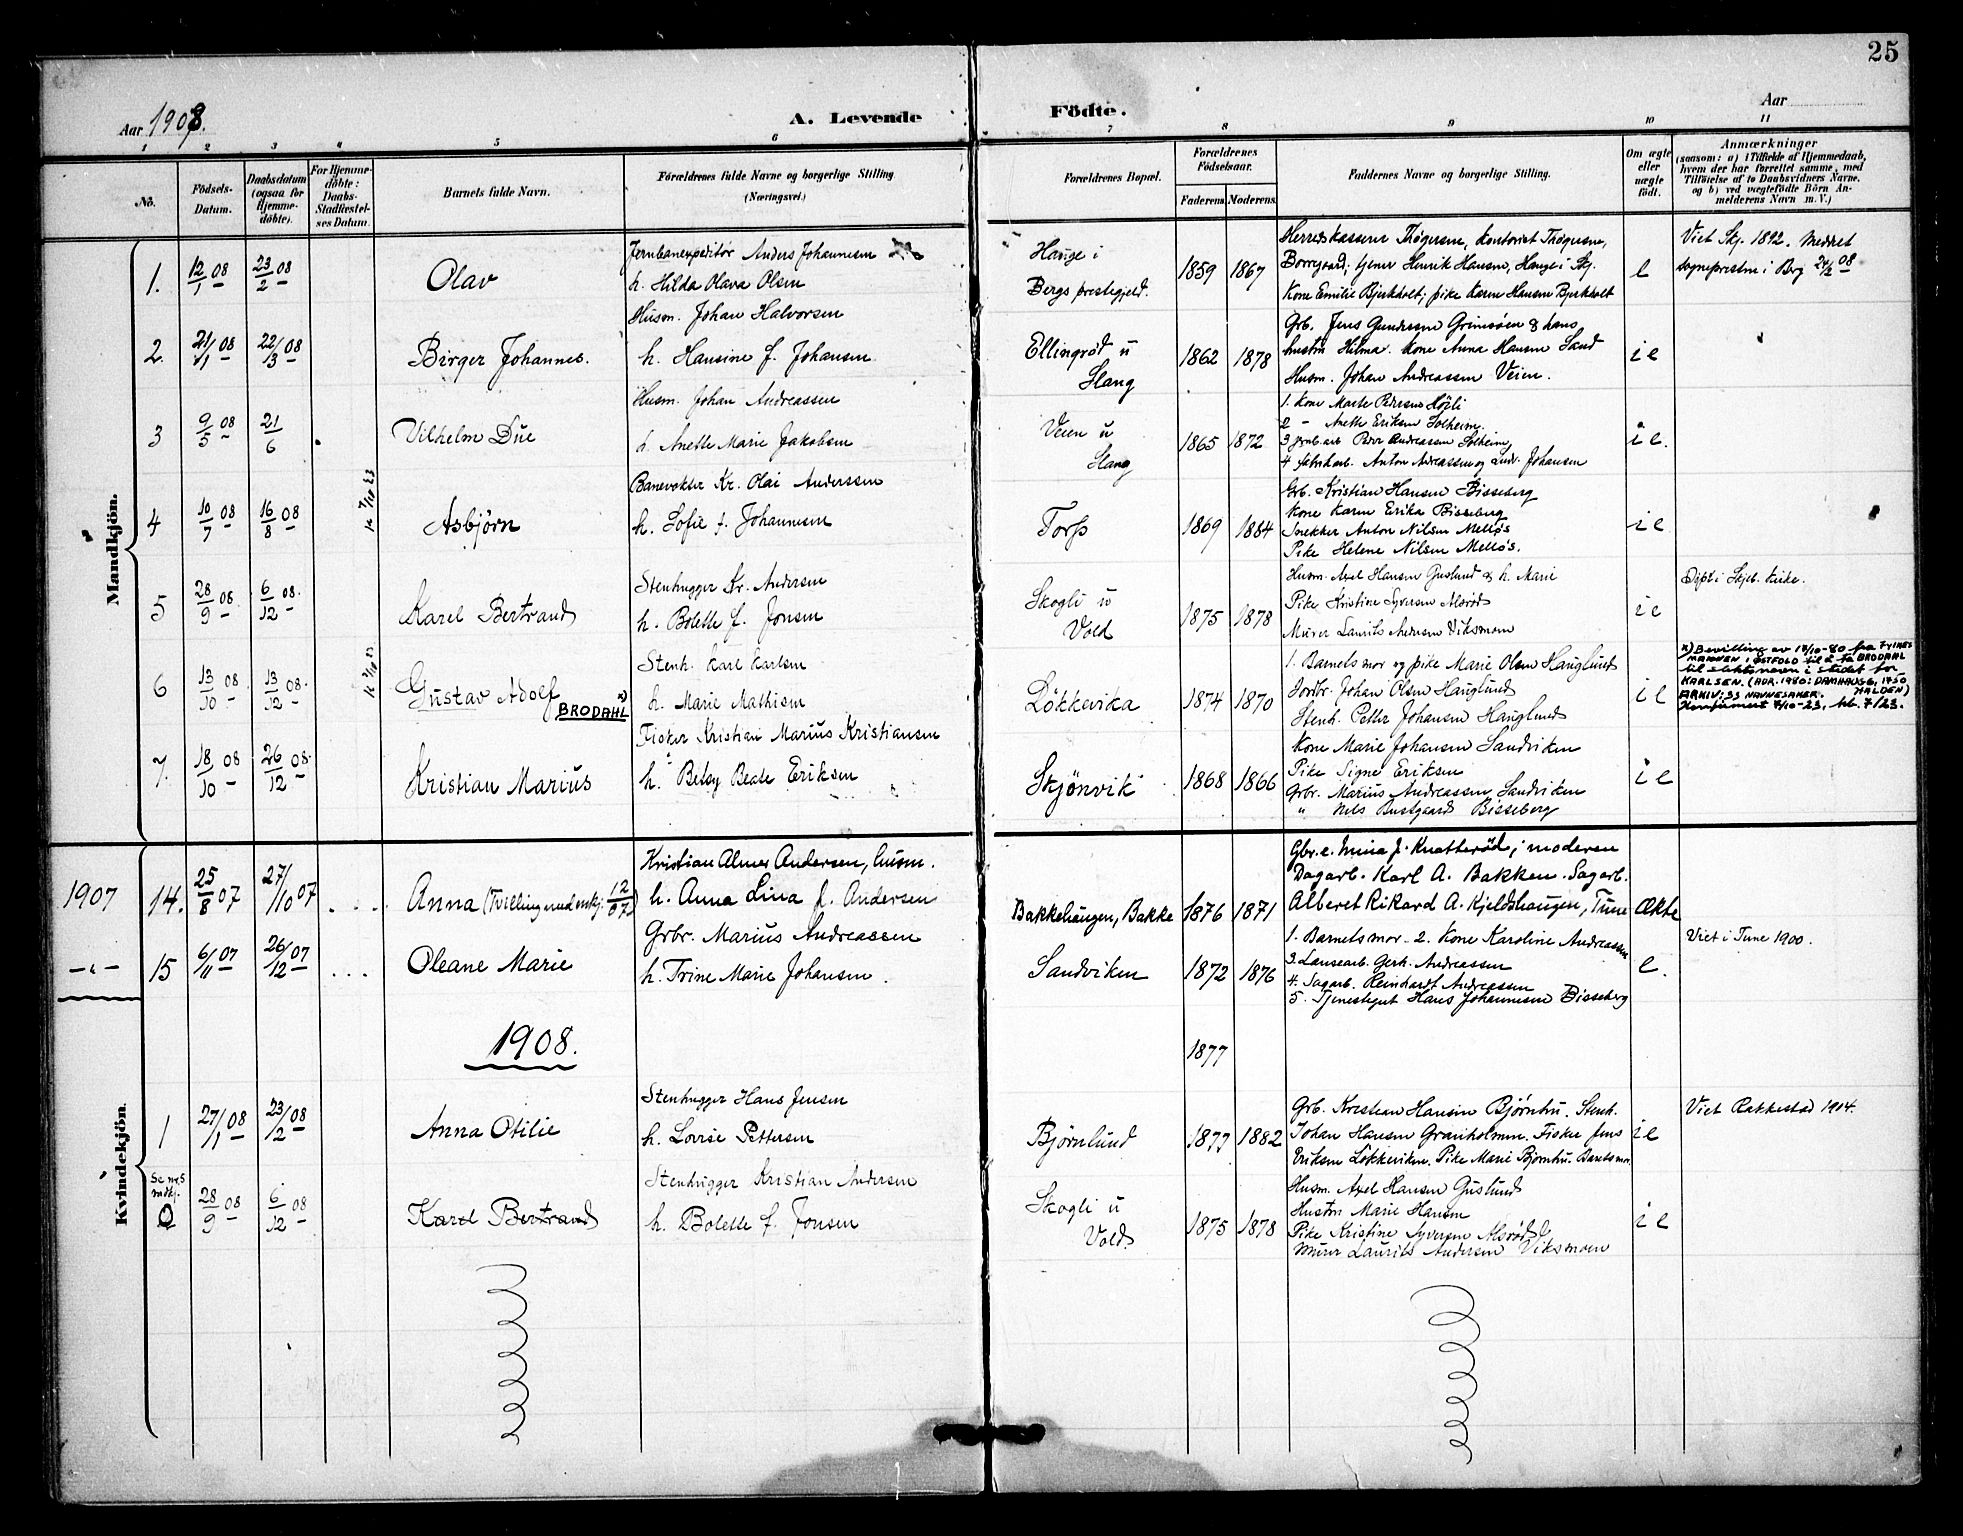 25
Aar 1908.
A. Levende Födte.
Aar
1 2 3 4 5 6 7 8 9 10 11
No.
Födsels-Datum.
Daabsdatum (ogsaa for Hjemme-döbte).
For Hjemme-döbte: Daabs-Stadfæstel-ses Datum.
Barnets fulde Navn.
Forældrenes fulde Navne og borgerlige Stilling
(Næringsvei.)
Forældrenes Bopæl.
Forældrenes Födselsaar.
Faderens Moderens
Faddernes Navne og borgerlige Stilling.
Om ægte eller uægte født.
Anmærkninger
(saasom: a) i Tilfælde af Hjemmedaab,
hvem der har forrettet samme, med
Tilføielse af to Daabsvidners Navne,
og b) ved uægtefödte Börn An-
melderens Navn m. V.)
Mandkjön.
1. 12/1 08 23/2 08
Olav
Jernbanexpeditör Anders Johannesen
h. Hilda Olava Olsen
Hauge i
Bergs prestegjeld.
1859 1867
Herredskasserer Thøgersen, Kontorist Thøgersen,
Borregaard; tjener Henrik Hansen, Hauge i Skj.
Kone Emilie Bjerkholt; pike Karen Hansen Bjerkholt
e
Viet Skj. 1892. Meddelt
sogneprestn i Berg 24/2 08
2. 21/1 08 22/3 08
Birger Johannes.
Husm. Johan Halvorsen
h. Hansine f. Johansen
Ellingrød u
Slang
1862 1878
Grb. Jens Gundersen Grimsöen & hans
hustru Hilma. Kone Anna Hansen Sand
Husm. Johan Andreassen Veien.
i e
3 9/5 08 21/6
Vilhelm Due
Husm. Johan Andreassen
h. Anette Marie Jakobsen
Veien u
Slang
1865 1872
1. Kone Marte Pedersen Högli
2 - Anette Eriksen Solheim.
3 Jernb.arb Peder Andreassen Solheim,
4 fabrikarb. Anton Andreassen og Andr. Johansen
i e.
4 10/7 08 16/8 08
k 7/10 23
Asbjörn
Banevokter Kr. Olai Anderssen
h. Sofie f. Johannesen
Torp
1869 1884
Grb. Kristian Hansen Bisseberg
Kone Karen Erika Bisseberg
Snekker Anton Nilsen Melløs
Pike Helene Nilsen Melløs.
i e
5 28/9 08 6/12 08.
Karel Bertrand
Stenhugger Kr. Andersen
h. Bolette f. Jonsen
Skogli u
Vold
1875 1878
Husm. Axel Hansen Guslund & h. Marie
Pike Kristine Syversen Alsrød
Murer Laurits Andersen Viksmoen
i e
Döpt i Skjeb. kirke.
6 13/10 08 13/12 08.
k 7/10 23
Gustav Adolf x)
BRODAHL
Stenh. Karl Karlsen
h. Marie Mathisen
Lökkevika
1874 1870
1. Barnets mor og pike Marie Olsen Hauglund
Jordbr. Johan Olsen Hauglund
Stenh. Petter Johansen Hauglund
i e
x) Bevilling av 18/10-80 fra FYLKES
MANNEN I ØSTFOLD til å ta BRODAHL
til slektsnavn i stedet for
KARLSEN. (ADR. 1980: DAMHAUG 6, 1750
ARKIV: 55 NAVNESAKER. HALDEN)
Konfirmert 7/10-23, nr. 7/23.
7. 18/10 08 26/12 08.
Kristian Marius
Fisker Kristian Marius Kristiansen
h. Betsy Beate Eriksen
Skjönvik
1868 1866
Kone Marie Johansen Sandviken
Pike Signe Eriksen
Grbr. Marius Andreassen, Sandviken
" Nils Bustgaard Bisseberg
i e
Kvindekjön.
1907
14. 25/8 07 27/10 07 . . .
Anna (Tvilling med mskj. 12/07)
Kristian Almer Andersen, husm.
h. Anna Lina f. Andersen
Bakkehaugen, Bakke
1876 1871
Gbr.e. Mina J. Knatterød; moderen
Dagarb. Karl A. Bakken. Sagarb.
Alberet Rikard A. Kjeldshaugen, Tune
Ækte
-"- 15 6/11 07 26/12 07 . . .
Oleane Marie
Grbr. Marius Andreassen
h. Trine Marie Johansen.
Sandviken
1872 1876
1. Barnets mor - 2. Kone Karoline Andreassen
3. Lansearb. Gerh. Andreassen
4. Sagarb. Reinhardt Andreassen
5. Tjenestegut Hans Johannesen Bisseberg
e.
Viet i Tune 1900.
1908.
1877
1 27/1 08 23/2 08
Anna Otilie
Stenhugger Hans Jensen
h. Lovise Pettersen
Bjørnlund
1877 1882
Grb. Kristian Hansen Bjørnhu. Stenh.
Johan Hansen Granholmen. Fisker Jens
Eriksen Lökkeviken. Pike Marie Bjørnhu. Barnets mor.
i e
Viet Rakkestad 1904.
Se nr. 5
mdkj.
0 28/9 08 6/12 08
Karel Bertrand
Stenhugger Kristian Andersen
h. Bolette f. Jonsen
Skogli u
Vold.
1875 1878
Husm. Axel Hansen Guslund
Hustru Marie Hansen
Pike Kristine Syversen Alsrød
Murer Laurits Andersen Viksmoen
i e